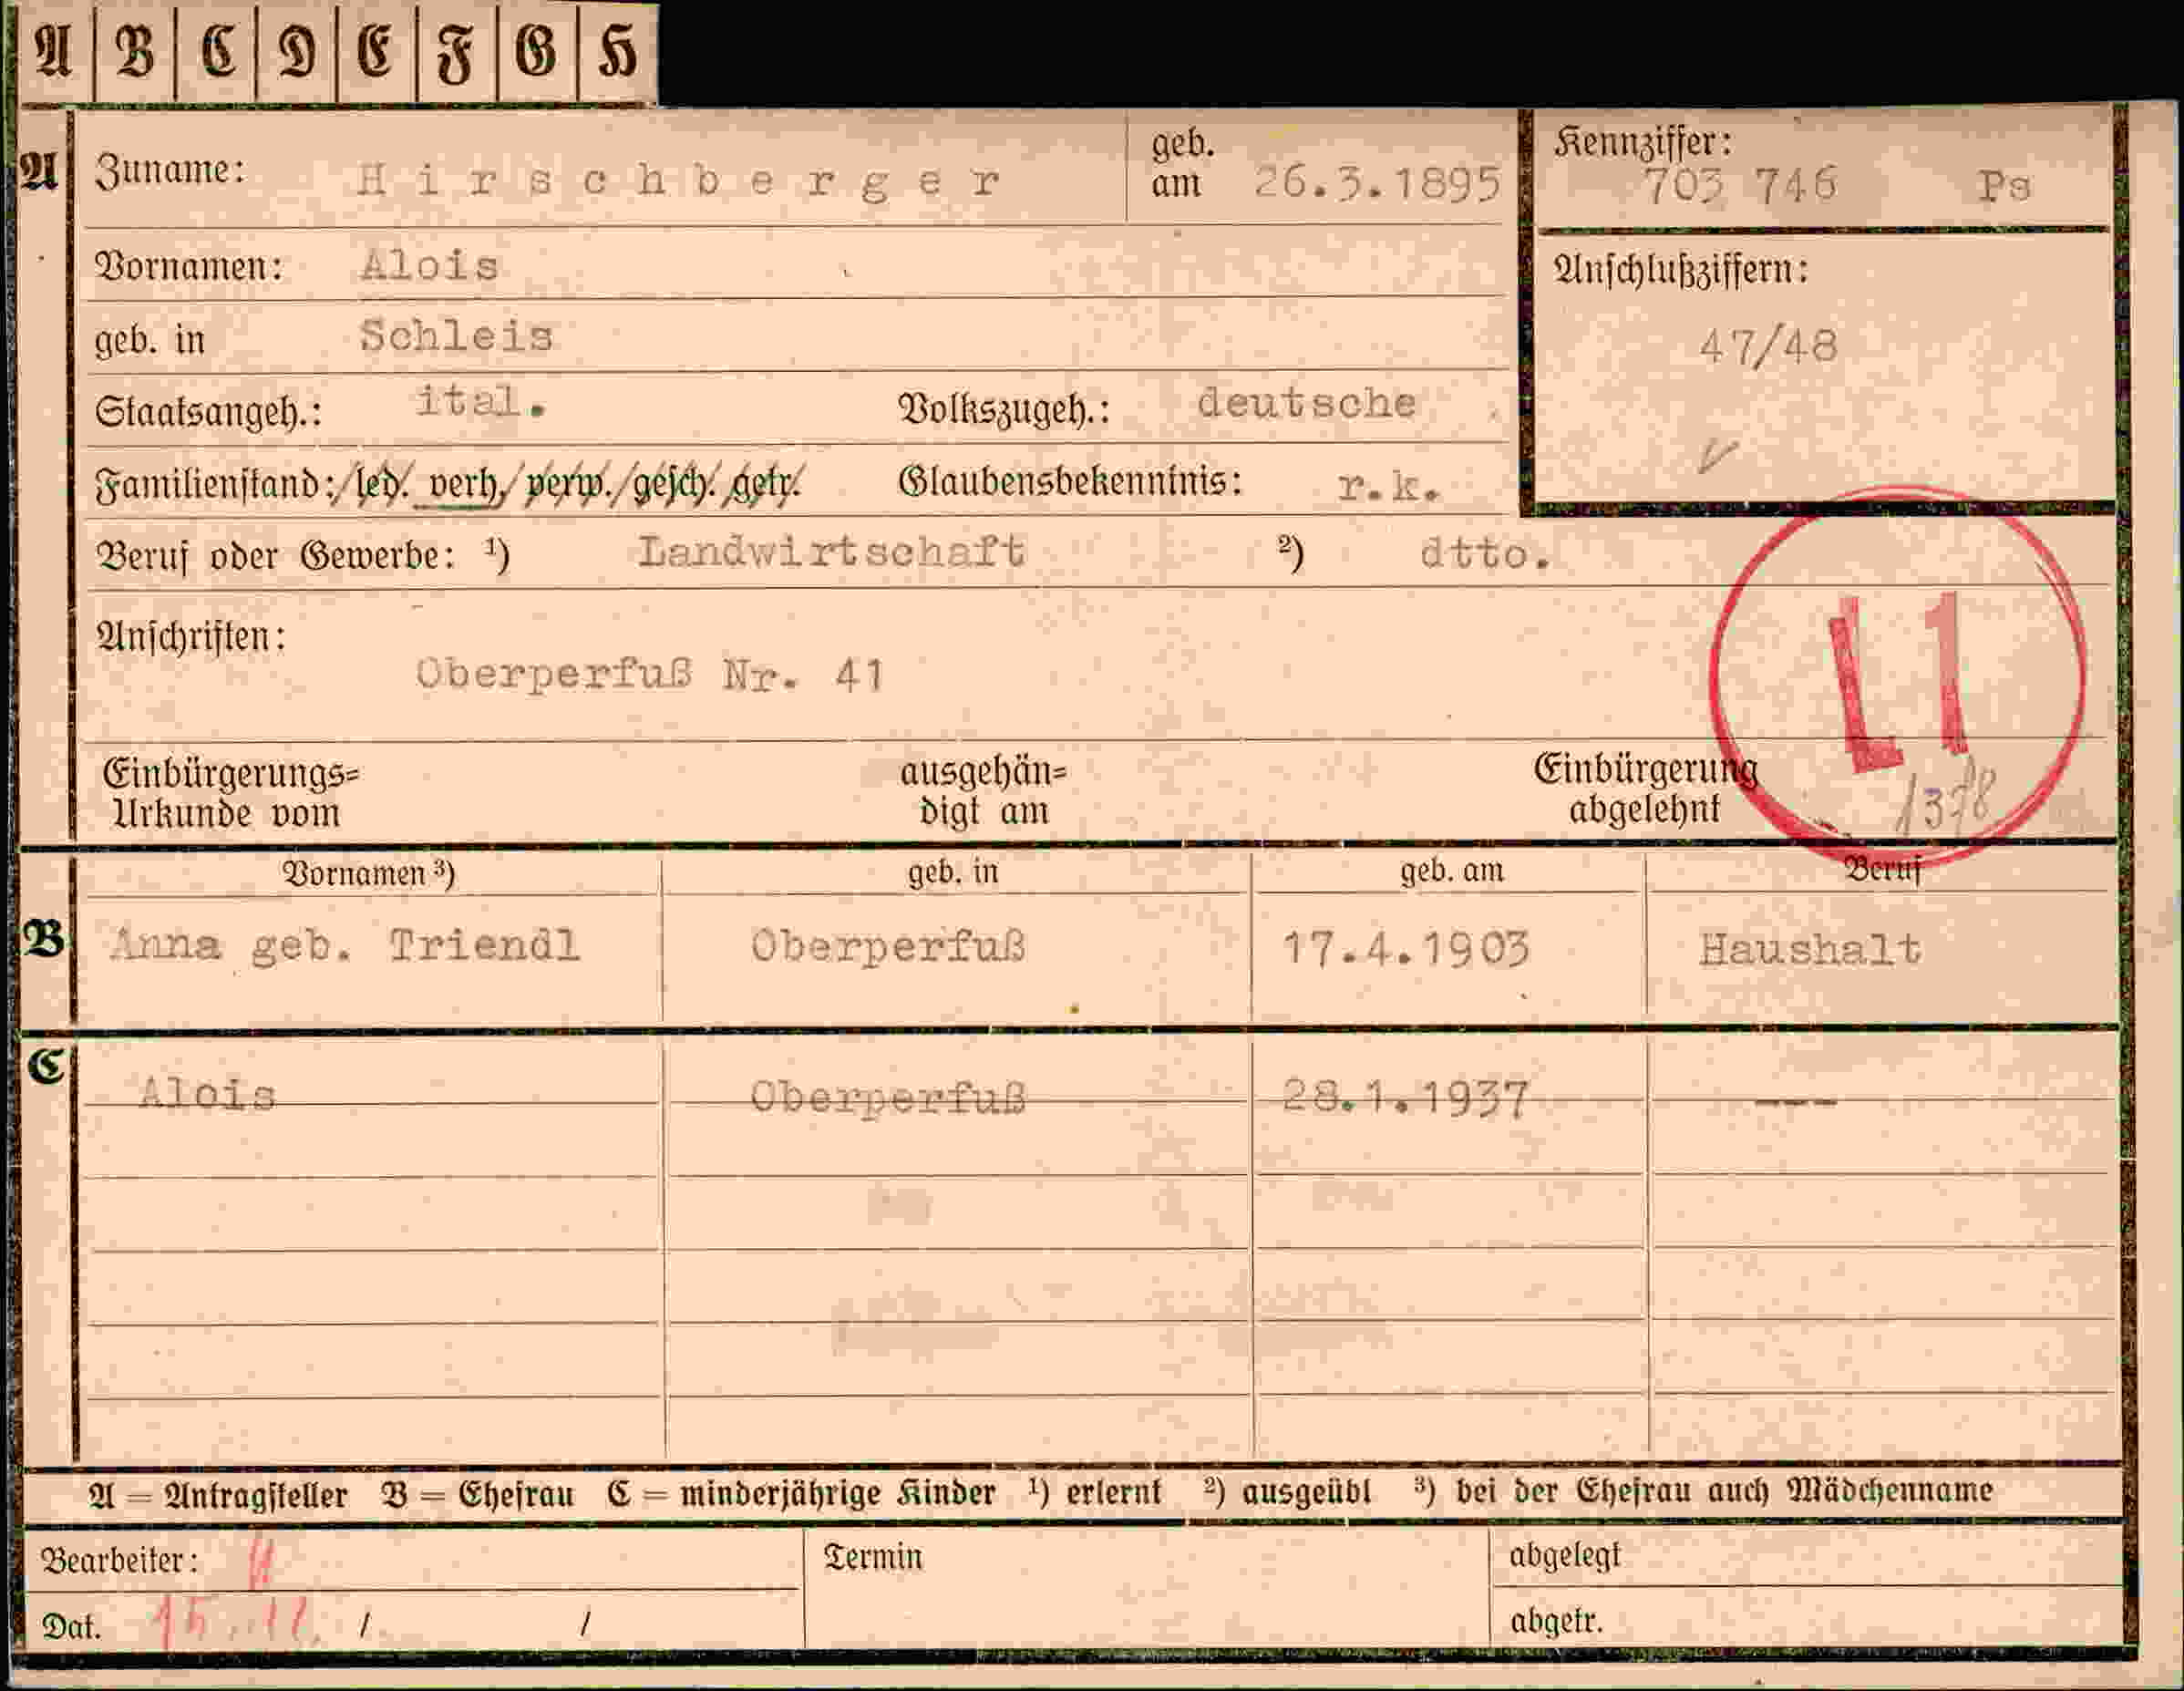 A B C D E F G H
A Zuname: Hirschberger geb. am 26.3.1895
Kennziffer: 703 746 Ps
Vornamen: Alois
Anschlußziffern:
geb. in Schleis
47/48
Staatsangeh.: ital. Volkszugeh.: deutsche
Familienstand: led. verh. verw. gesch. getr. Glaubensbekenntnis: r.k.
Beruf oder Gewerbe: ¹) Landwirtschaft ²) dtto.
Anschriften:
Oberperfuß Nr. 41
L1
Einbürgerungs= ausgehän= Einbürgerung
Urkunde vom digt am abgelehnt
Vornamen ³) geb. in geb. am Beruf
B Anna geb. Triendl Oberperfuß 17.4.1903 Haushalt
C Alois Oberperfuß 28.1.1937 ---
A = Antragsteller B = Ehefrau C = minderjährige Kinder ¹) erlernt ²) ausgeübt ³) bei der Ehefrau auch Mädchenname
Bearbeiter: Termin abgelegt
Dat. / / abgetr.